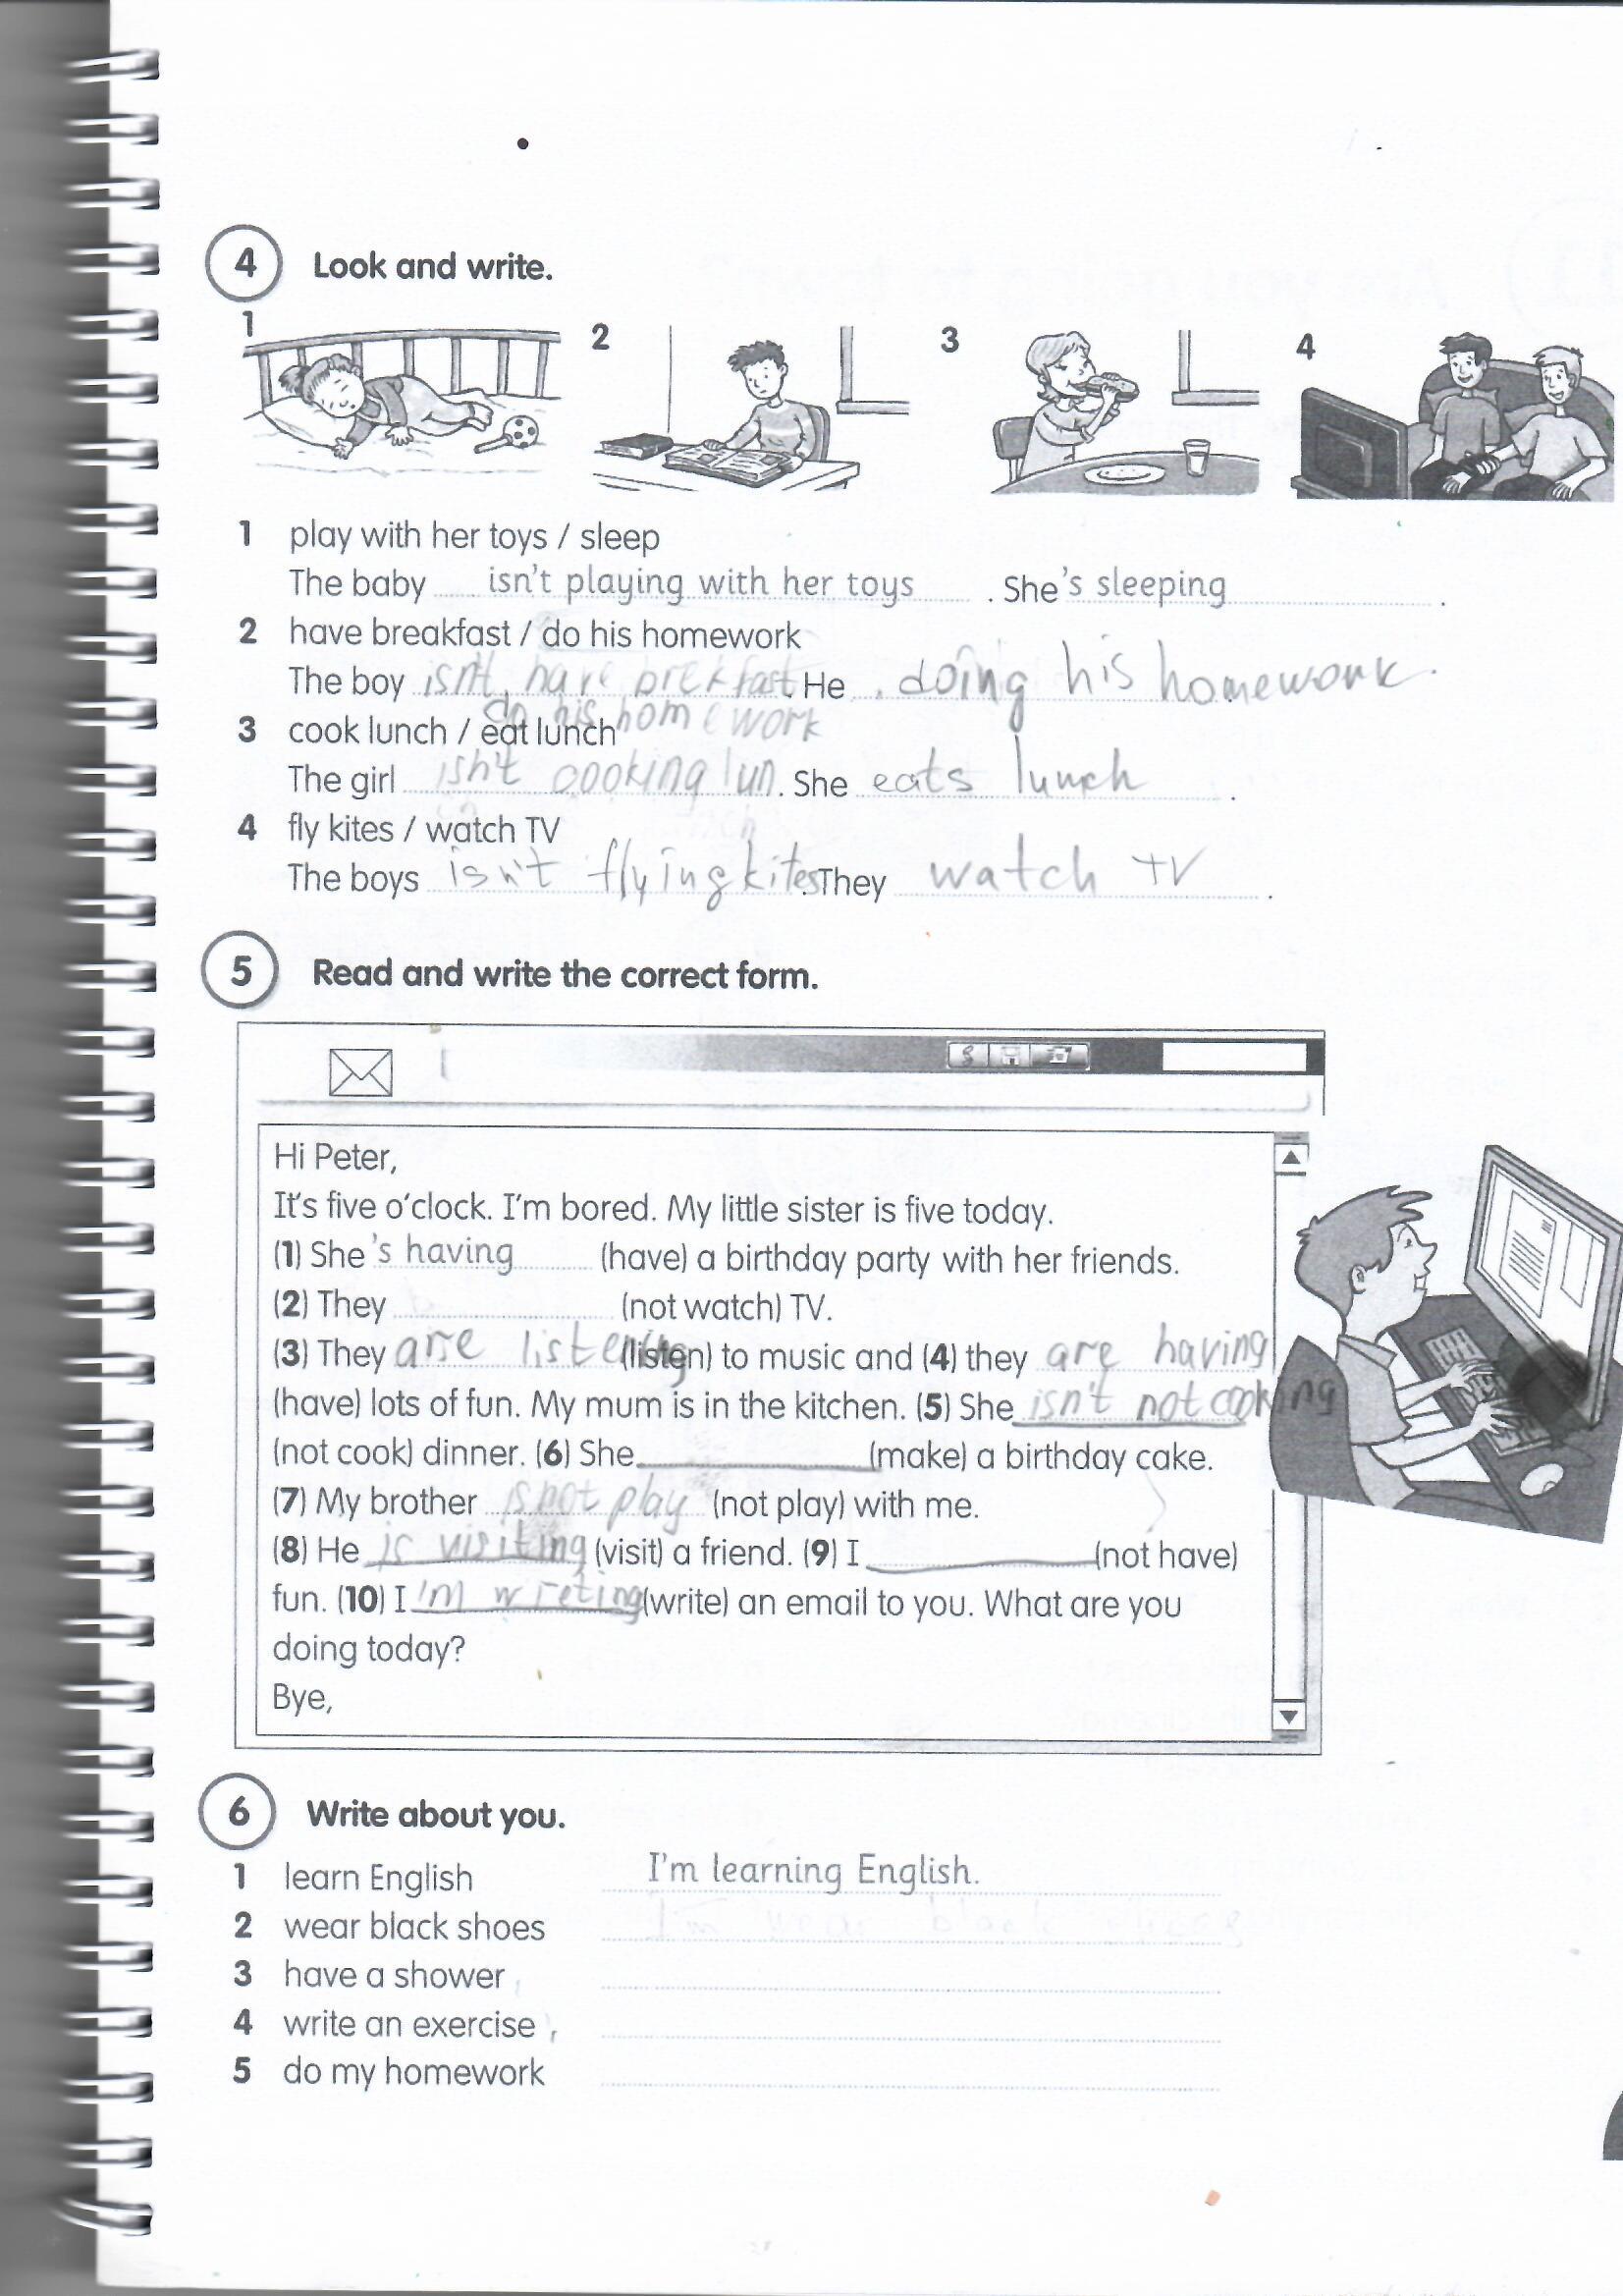 4 Look and write.
1 2 3 4
1 play with her toys / sleep
The baby isn't playing with her toys . She's sleeping .
2 have breakfast / do his homework
The boy isn't have brekfast. He doing his homework.
do his homework
3 cook lunch / eat lunch
The girl isn't cooking lun. She eats lunch .
4 fly kites / watch TV
The boys isn't flying kites. They watch TV .
5 Read and write the correct form.
Hi Peter,
It's five o'clock. I'm bored. My little sister is five today.
(1) She's having (have) a birthday party with her friends.
(2) They (not watch) TV.
(3) They are listening (listen) to music and (4) they are having
(have) lots of fun. My mum is in the kitchen. (5) She isn't not cooking
(not cook) dinner. (6) She (make) a birthday cake.
(7) My brother is not play (not play) with me.
(8) He is visiting (visit) a friend. (9) I (not have)
fun. (10) I 'm wreting (write) an email to you. What are you
doing today?
Bye,
6 Write about you.
1 learn English I'm learning English.
2 wear black shoes I'm wear black
3 have a shower
4 write an exercise
5 do my homework